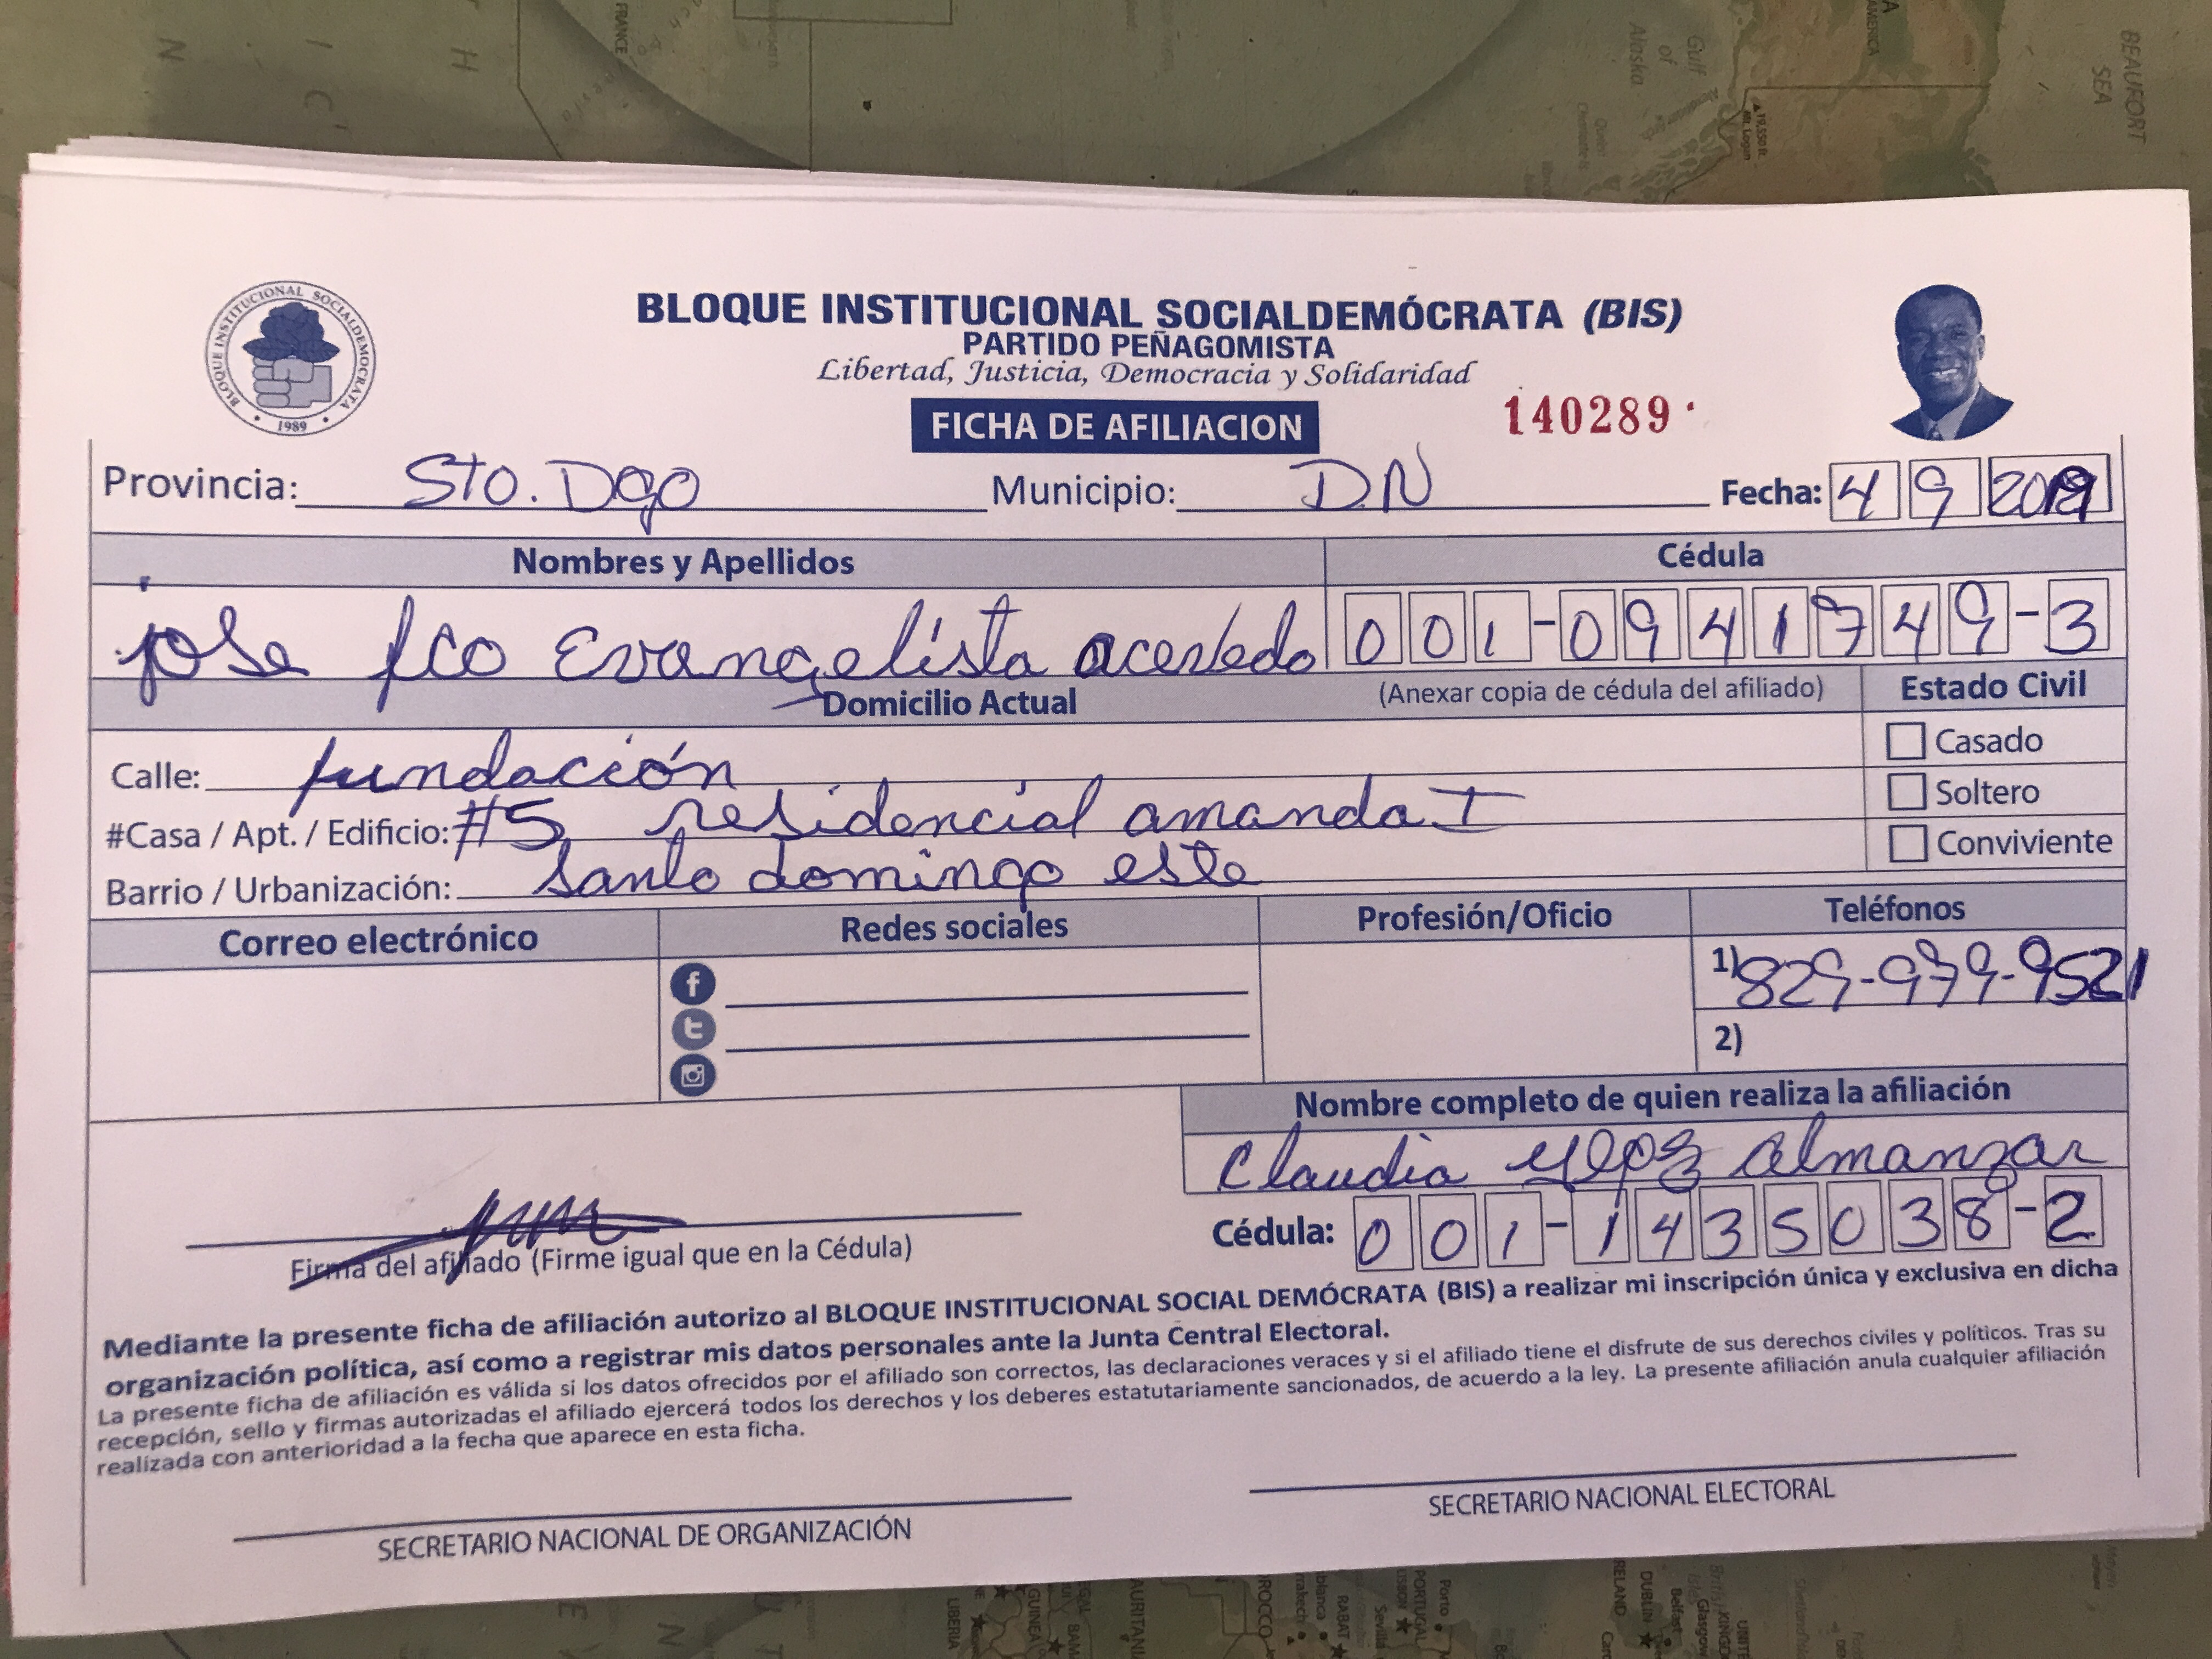 BLOQUE INSTITUCIONAL SOCIALDEMOCRATA
1989
BLOQUE INSTITUCIONAL SOCIALDEMÓCRATA (BIS)
PARTIDO PEÑAGOMISTA
Libertad, Justicia, Democracia y Solidaridad
FICHA DE AFILIACION
140289
Provincia: Sto. Dgo Municipio: D.N Fecha: 4 9 2019
Nombres y Apellidos Cédula
jose fco Evangelista acevedo 001-0941749-3
Domicilio Actual (Anexar copia de cédula del afiliado) Estado Civil
Calle: fundación Casado
#Casa / Apt. / Edificio: #5 residencial amanda I Soltero
Barrio / Urbanización: santo domingo este Conviviente
Correo electrónico Redes sociales Profesión/Oficio Teléfonos
1) 829-979-9521
2)
Nombre completo de quien realiza la afiliación
Claudia almanzar
Cédula: 001-1435038-2
Firma del afiliado (Firme igual que en la Cédula)
Mediante la presente ficha de afiliación autorizo al BLOQUE INSTITUCIONAL SOCIAL DEMÓCRATA (BIS) a realizar mi inscripción única y exclusiva en dicha
organización política, así como a registrar mis datos personales ante la Junta Central Electoral.
La presente ficha de afiliación es válida si los datos ofrecidos por el afiliado son correctos, las declaraciones veraces y si el afiliado tiene el disfrute de sus derechos civiles y políticos. Tras su
recepción, sello y firmas autorizadas el afiliado ejercerá todos los derechos y los deberes estatutariamente sancionados, de acuerdo a la ley. La presente afiliación anula cualquier afiliación
realizada con anterioridad a la fecha que aparece en esta ficha.
SECRETARIO NACIONAL DE ORGANIZACIÓN
SECRETARIO NACIONAL ELECTORAL
FRANCE
Gulf
of
Alaska
BEAUFORT
SEA
LIBERIA
GUINEA
RABAT
PORTUGAL
Porto
DUBLIN
Belfast